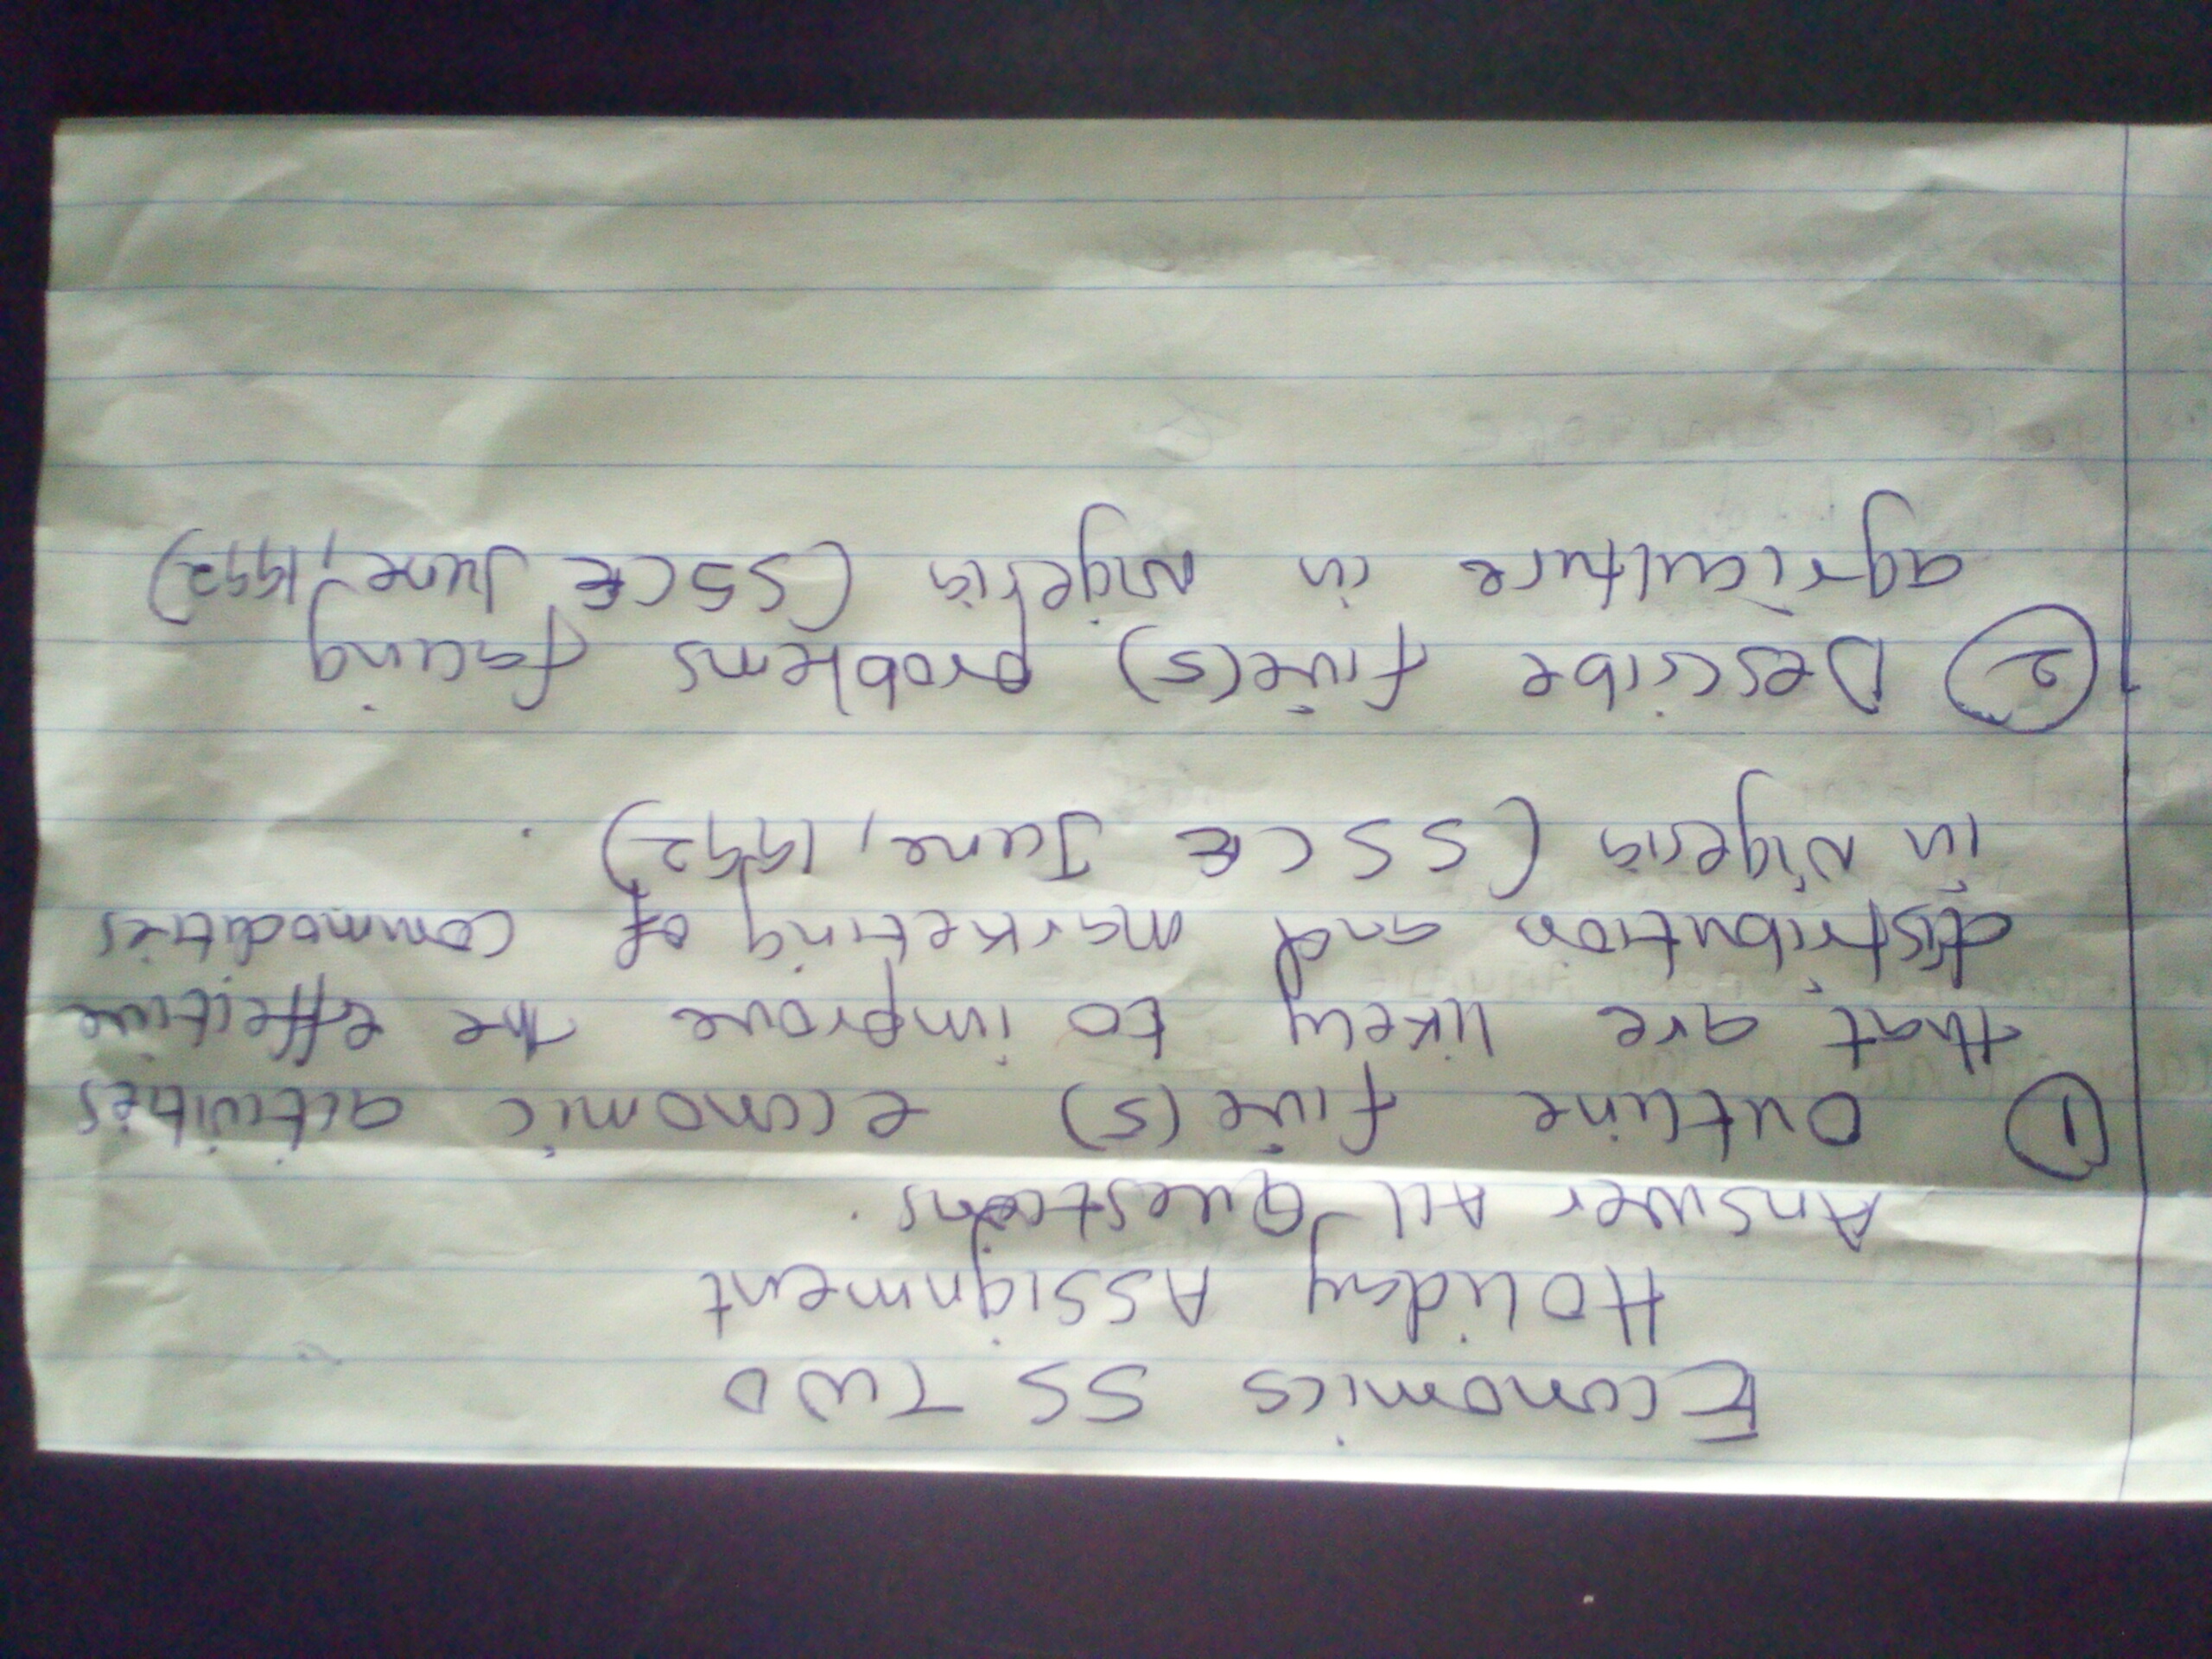 Economics SS TWO
Holiday Assignment
Answer All Questions.
① Outline five(5) economic activities
that are likely to improve the effective
distribution and marketing of commodities
in Nigeria (SSCE June, 1992).
② Describe five(5) problems facing
agriculture in Nigeria (SSCE June, 1992)